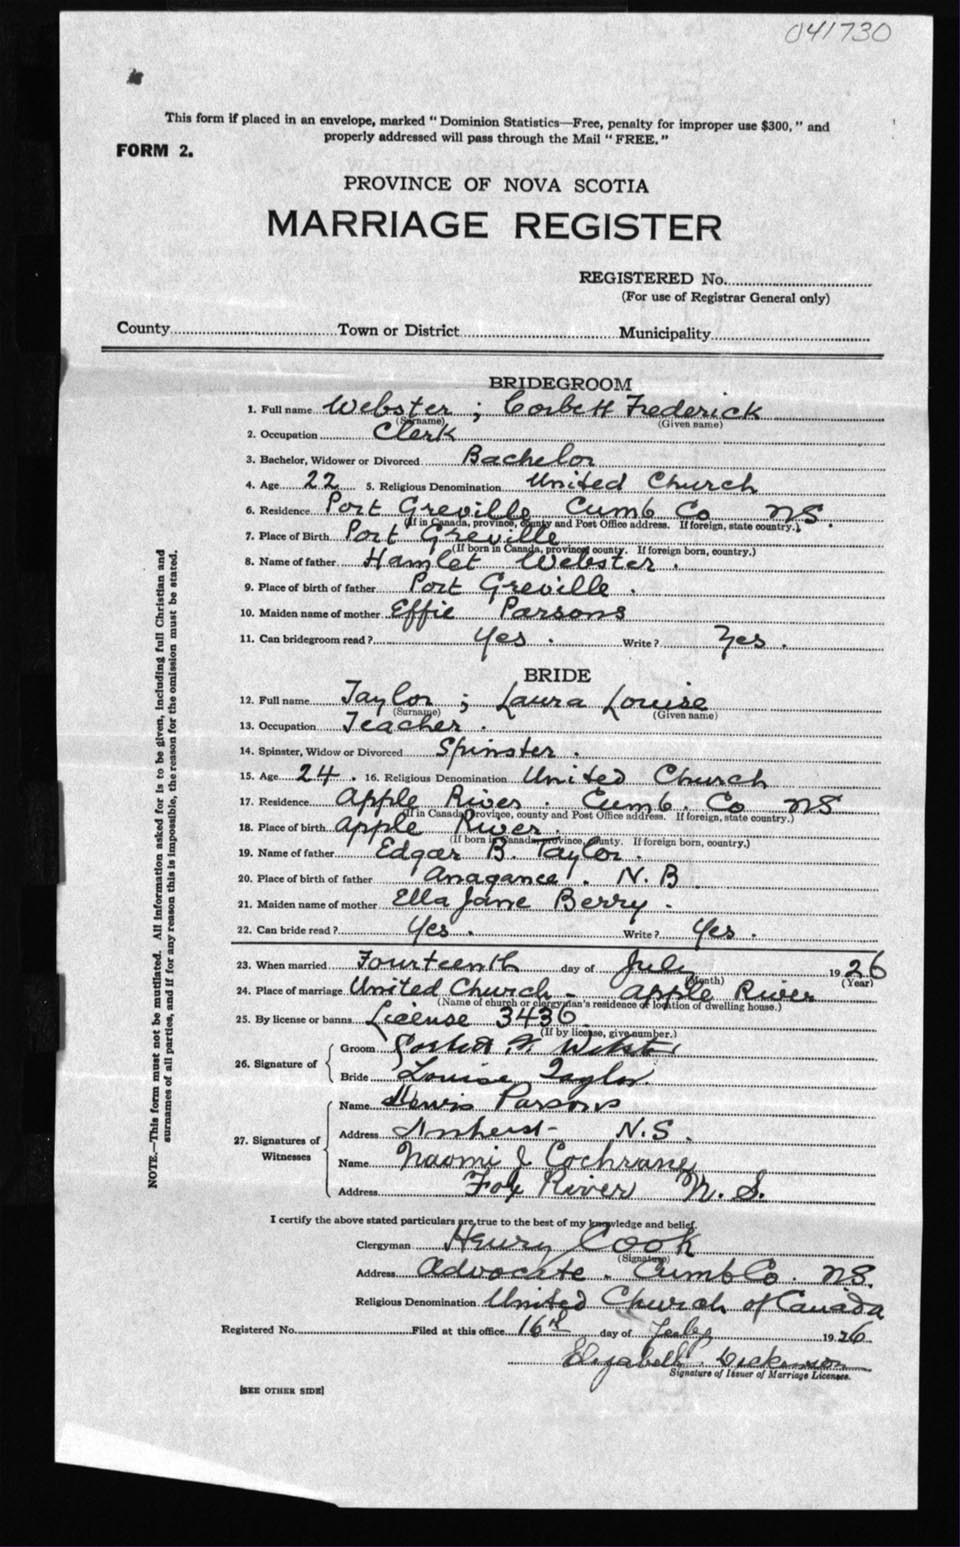 041730
This form if placed in an envelope, marked "Dominion Statistics—Free, penalty for improper use $300," and
properly addressed will pass through the Mail "FREE."
FORM 2.
PROVINCE OF NOVA SCOTIA
MARRIAGE REGISTER
REGISTERED No.
(For use of Registrar General only)
County Town or District Municipality
BRIDEGROOM
1. Full name Webster ; Corbett Frederick
(Surname) (Given name)
2. Occupation Clerk
3. Bachelor, Widower or Divorced Bachelor
4. Age 22 5. Religious Denomination United Church
6. Residence Port Greville Cumb Co NS.
(If in Canada, province, county and Post Office address. If foreign, state country.)
7. Place of Birth Port Greville
(If born in Canada, province, county. If foreign born, country.)
8. Name of father Hamlet Webster.
9. Place of birth of father Port Greville.
10. Maiden name of mother Effie Parsons
11. Can bridegroom read? Yes. Write? Yes.
BRIDE
12. Full name Taylor ; Laura Louise
(Surname) (Given name)
13. Occupation Teacher.
14. Spinster, Widow or Divorced Spinster.
15. Age 24. 16. Religious Denomination United Church
17. Residence Apple River. Cumb. Co NS
(If in Canada, province, county and Post Office address. If foreign, state country.)
18. Place of birth Apple River.
(If born in Canada, province, county. If foreign born, country.)
19. Name of father Edgar B. Taylor.
20. Place of birth of father Anagance. N.B.
21. Maiden name of mother Ella Jane Berry.
22. Can bride read? Yes. Write? Yes.
23. When married Fourteenth day of July 1926
(Month) (Year)
24. Place of marriage United Church - Apple River
(Name of church or clergyman's residence or location of dwelling house.)
25. By license or banns License 3436
(If by license, give number.)
26. Signature of
Groom Corbett F. Webster
Bride Louise Taylor.
27. Signatures of Witnesses
Name Parsons
Address Amherst- N.S.
Name Naomi J Cochrane
Address Fox River N.S.
I certify the above stated particulars are true to the best of my knowledge and belief.
Clergyman Henry Cook
(Signature)
Address Advocate. Cumb Co. N.S.
Religious Denomination United Church of Canada
Registered No. Filed at this office 16th day of July 1926
Elizabeth Dickinson
Signature of Issuer of Marriage Licenses.
[SEE OTHER SIDE]
NOTE.—This form must not be mutilated. All information asked for is to be given, including full Christian and
surnames of all parties, and if for any reason this is impossible, the reason for the omission must be stated.